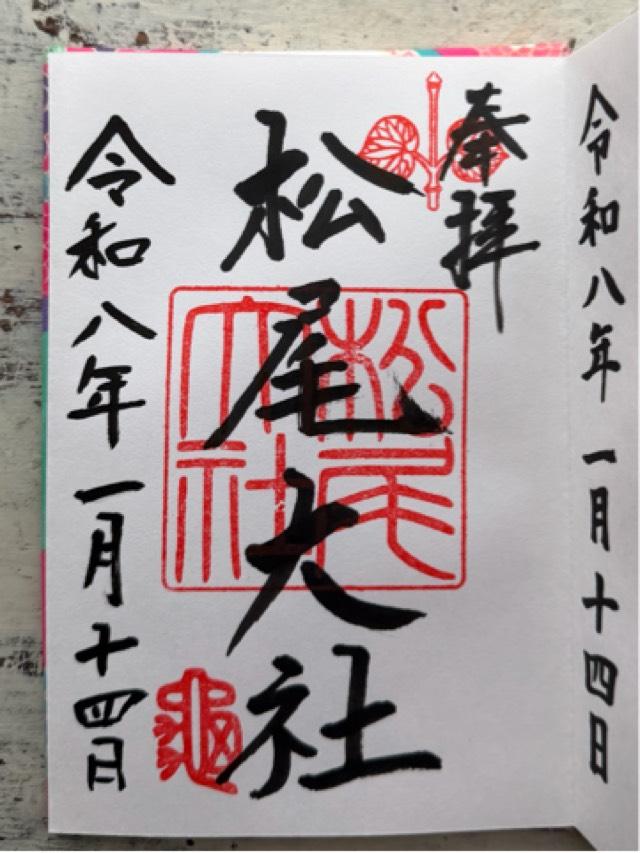 令和八年 一月十四日
奉拝
松尾大社
松尾大社
龜
令和八年一月十四日